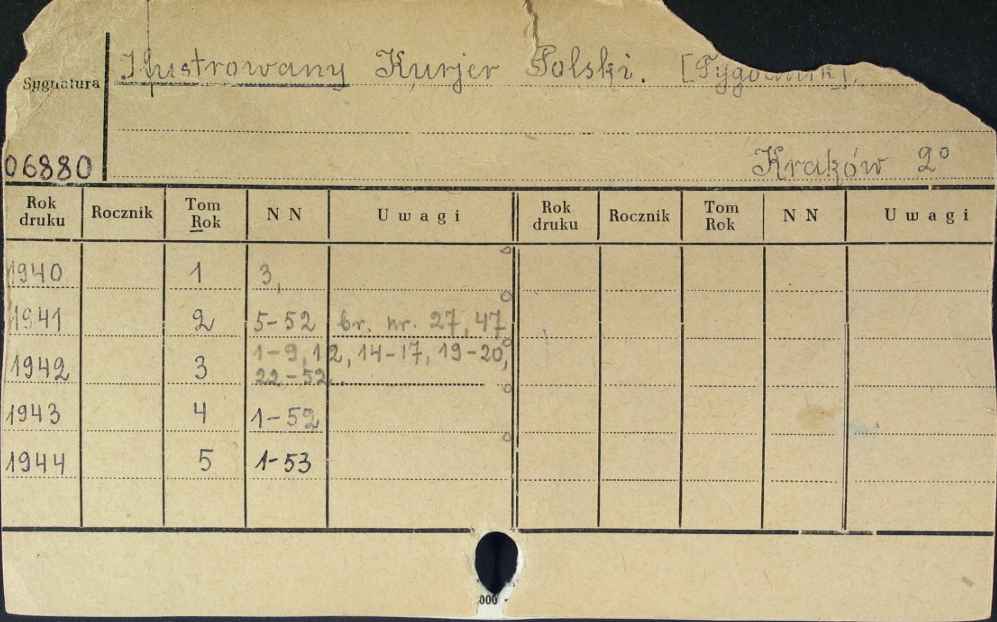 Ilustrowany Kurjer Polski. [Tygodnik].
Sygnatura
06880
Kraków 2°
Rok druku Rocznik Tom Rok N N Uwagi Rok druku Rocznik Tom Rok N N Uwagi
1940 1 3,
1941 2 5-52 br. nr. 27, 47
1942 3 1-9, 12, 14-17, 19-20,
22-52.
1943 4 1-52
1944 5 1-53
000